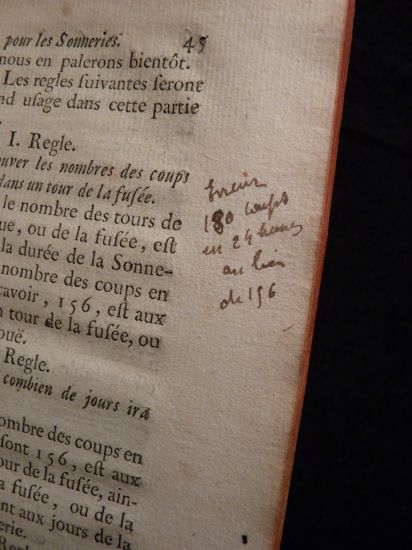 pour les Sonneries. 45
nous en palerons bientôt.
Les regles suivantes seront
nd usage dans cette partie
I. Regle.
uver les nombres des coups
dans un tour de la fusée.
le nombre des tours de
ue, ou de la fusée, est
la durée de la Sonne-
nombre des coups en
avoir, 156, est aux
n tour de la fusée, ou
ouë.
Regle.
combien de jours ira
ombre des coups en
sont 156, est aux
our de la fusée, ain-
a fusée, ou de la
nt aux jours de la
erie.
Regle
Erreur
180 coups
en 24 heures
au lieu
de 156